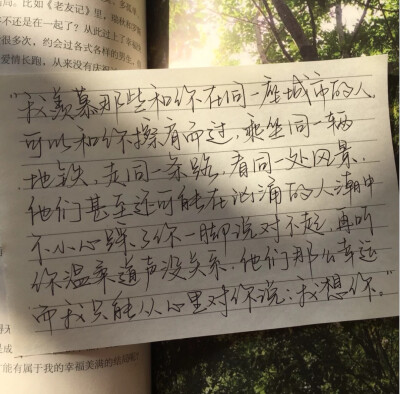 局。比如《老友记》里，瑞秋和罗
不还是在一起了？从此过上了幸福
很多次，约会过各式各样的男生。
爱情长跑，从来没有庆祝
“我羡慕那些和你在同一座城市的人
可以和你擦肩而过，乘坐同一辆
地铁，走同一条路，看同一处风景，
他们甚至还可能在汹涌的人潮中
不小心踩了你一脚说对不起，再听
你温柔道声没关系。他们那么幸运
而我只能从心里对你说：我想你。”
才能有属于我的幸福美满的结局呢？